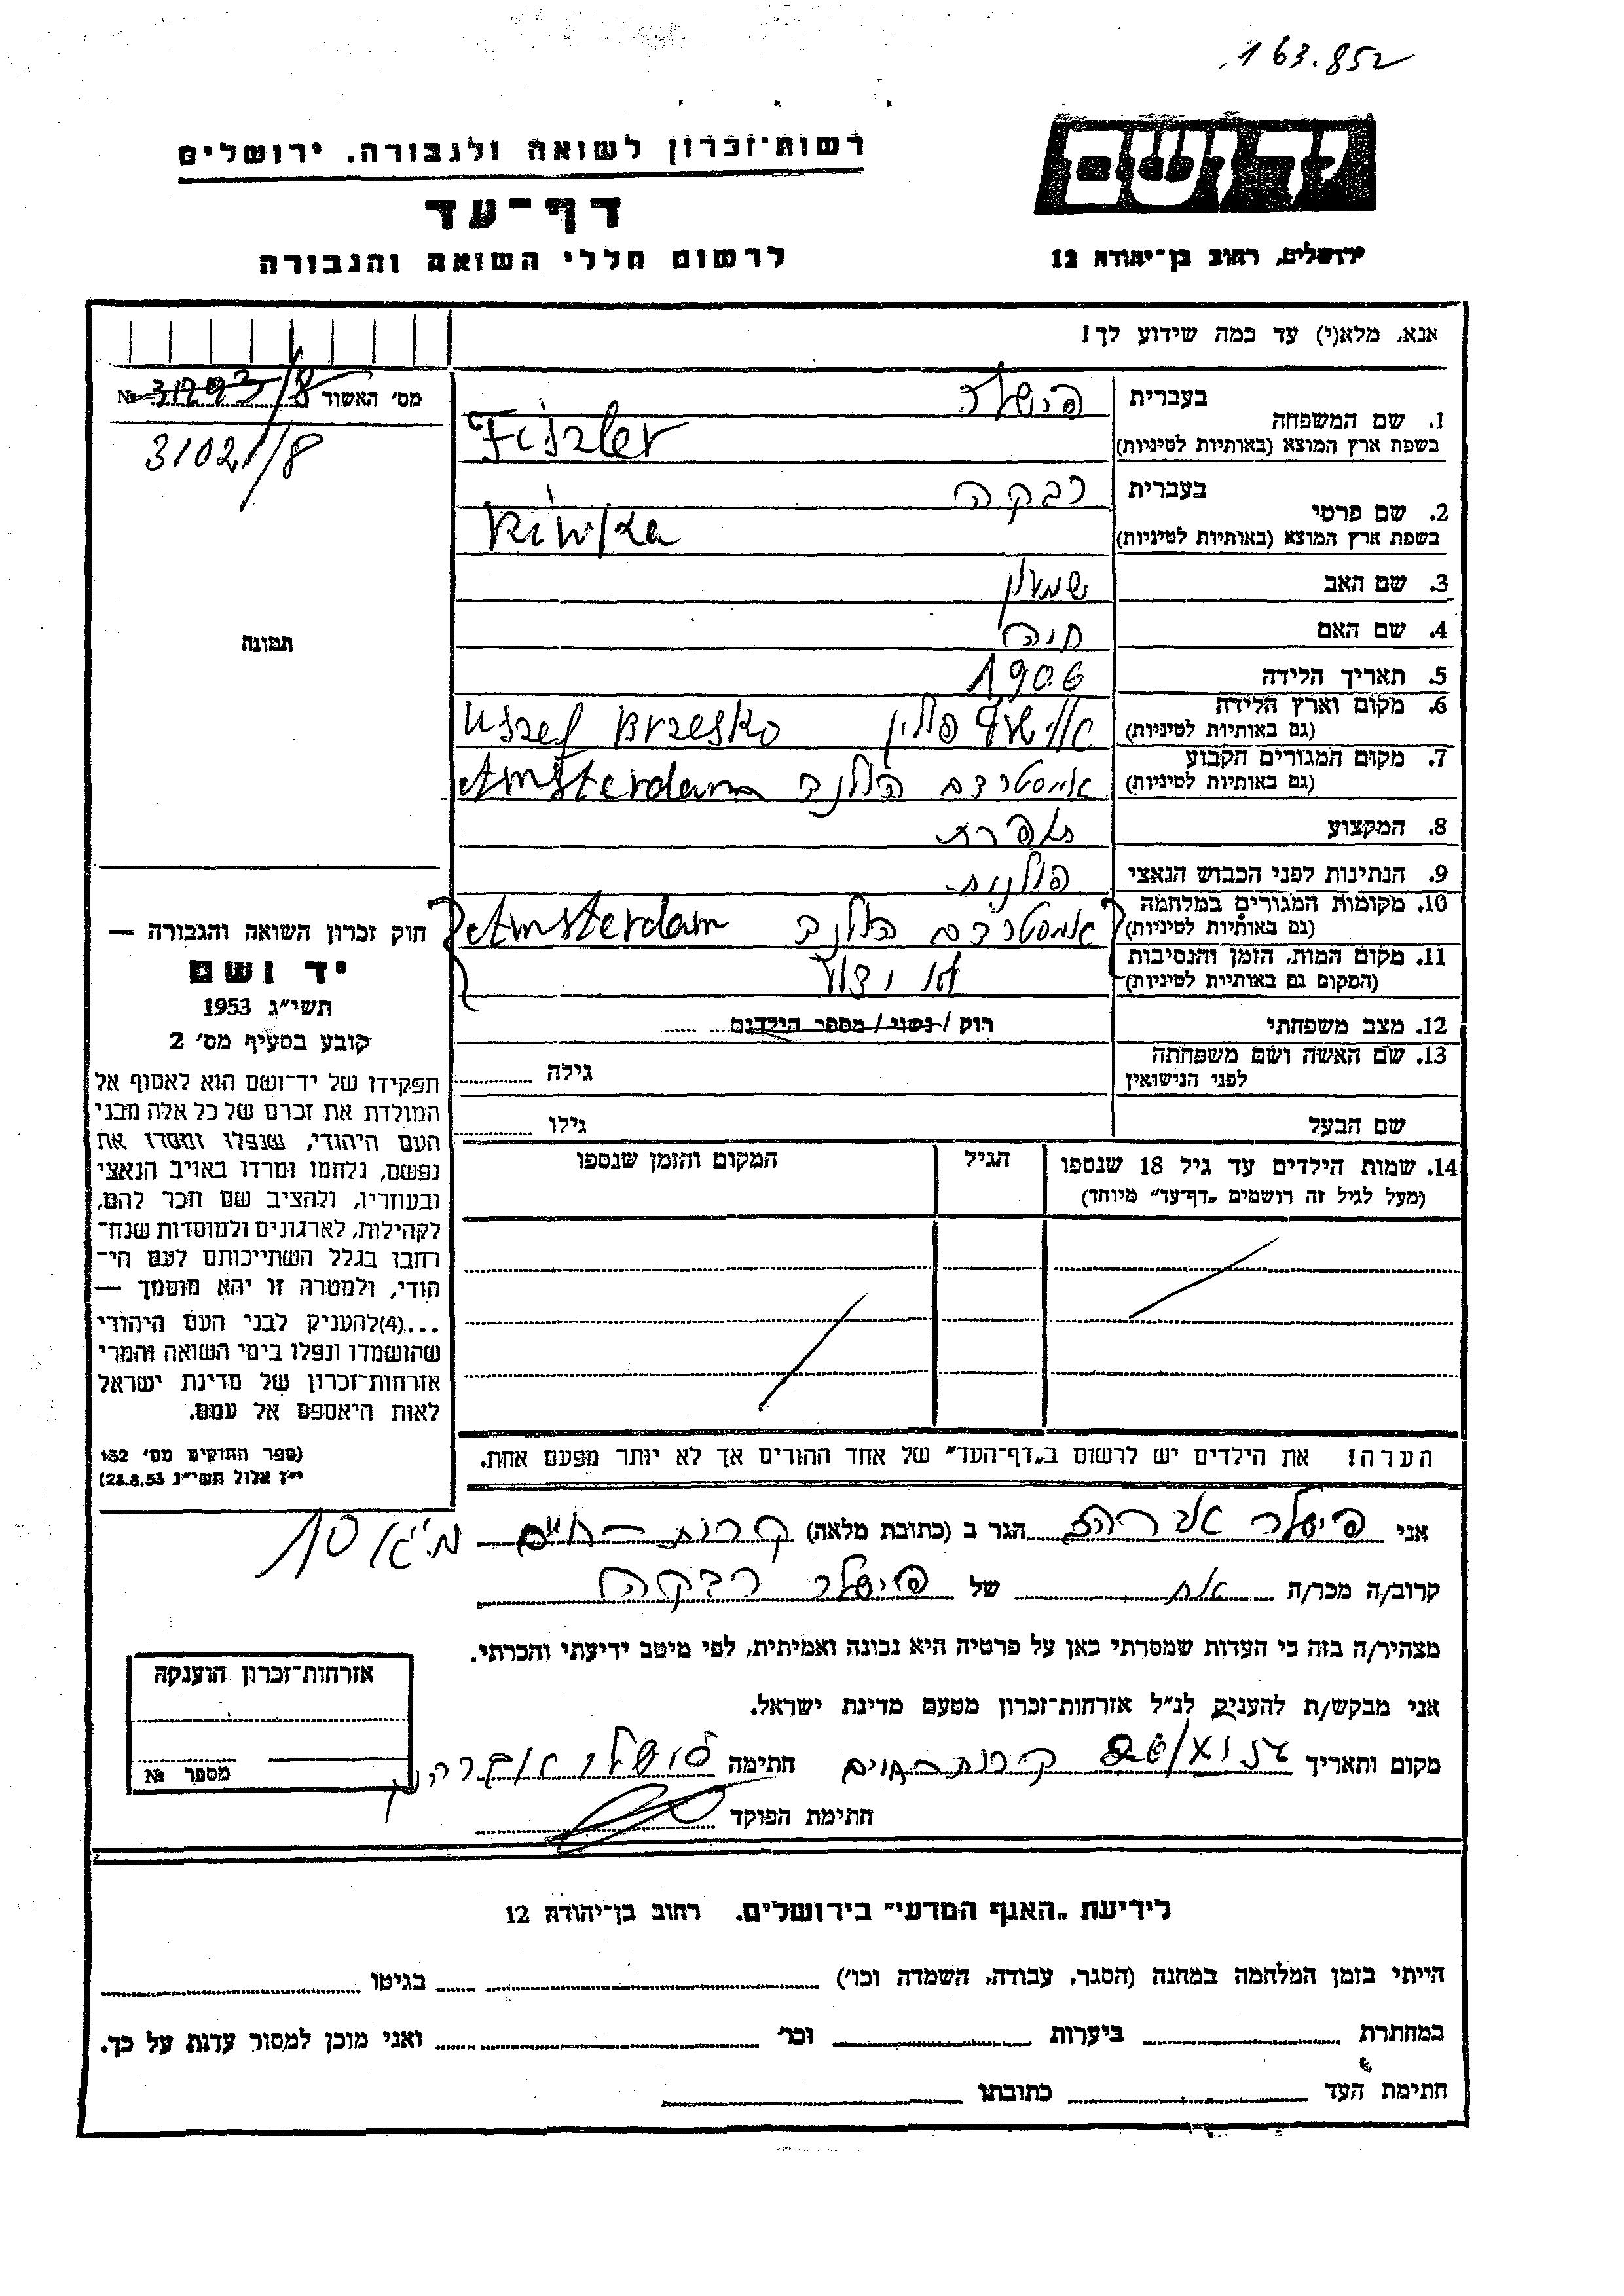 163.852
יד ושם
רשות־זכרון לשואה ולגבורה. ירושלים
דף־עד
ירושלים, רחוב בן־יהודה 12
לרשום חללי השואה והגבורה
אנא, מלא(י) עד כמה שידוע לך!
מס' האשור № 31293/8
31021/8
תמונה
1. שם המשפחה
בעברית פישלר
בשפת ארץ המוצא (באותיות לטיניות) Fiszler
2. שם פרטי
בעברית רבקה
בשפת ארץ המוצא (באותיות לטיניות) Riwka
3. שם האב שמעון
4. שם האם חיה
5. תאריך הלידה 1906
6. מקום וארץ הלידה פולין Uszef Brzesko
(גם באותיות לטיניות)
7. מקום המגורים הקבוע אמסטרדם הולנד Amsterdam
(גם באותיות לטיניות)
8. המקצוע תופרת
9. הנתינות לפני הכבוש הנאצי פולנית
10. מקומות המגורים במלחמה אמסטרדם הולנד Amsterdam
(גם באותיות לטיניות)
11. מקום המות, הזמן והנסיבות לא ידוע
(המקום גם באותיות לטיניות)
12. מצב משפחתי רוק / נשוי / מספר הילדים
13. שם האשה ושם משפחתה גילה
לפני הנישואין
שם הבעל גילו
14. שמות הילדים עד גיל 18 שנספו הגיל המקום והזמן שנספו
(מעל לגיל זה רושמים „דף־עד" מיוחד)
הערה! את הילדים יש לרשום ב„דף־העד" של אחד ההורים אך לא יותר מפעם אחת.
חוק זכרון השואה והגבורה —
יד ושם
תשי"ג 1953
קובע בסעיף מס' 2
תפקידו של יד־ושם הוא לאסוף אל
המולדת את זכרם של כל אלה מבני
העם היהודי, שנפלו ומסרו את
נפשם, נלחמו ומרדו באויב הנאצי
ובעוזריו, ולהציב שם וזכר להם,
לקהילות, לארגונים ולמוסדות שנח־
רחבו בגלל השתייכותם לעם הי־
הודי, ולמטרה זו יהא מוסמך —
...(4)להעניק לבני העם היהודי
שהושמדו ונפלו בימי השואה והמרי
אזרחות־זכרון של מדינת ישראל
לאות היאספם אל עמם.
(ספר החוקים מס' 132
י"ז אלול תשי"ג 28.8.53)
אני פישלר אברהם הגר ב (כתובת מלאה) קרית־חיים
קרוב/ה מכר/ה אח של פישלר רבקה
מצהיר/ה בזה כי העדות שמסרתי כאן על פרטיה היא נכונה ואמיתית, לפי מיטב ידיעתי והכרתי.
אני מבקש/ת להעניק לנ"ל אזרחות־זכרון מטעם מדינת ישראל.
מקום ותאריך קרית חיים חתימה פישלר אברהם
חתימת הפוקד
אזרחות־זכרון הוענקה
מספר №
לידיעת „האגף המדעי" בירושלים. רחוב בן־יהודה 12
הייתי בזמן המלחמה במחנה (הסגר, עבודה, השמדה וכו') בגיטו
במחתרת ביערות וכו' ואני מוכן למסור עדות על כך.
חתימת העד כתובתו